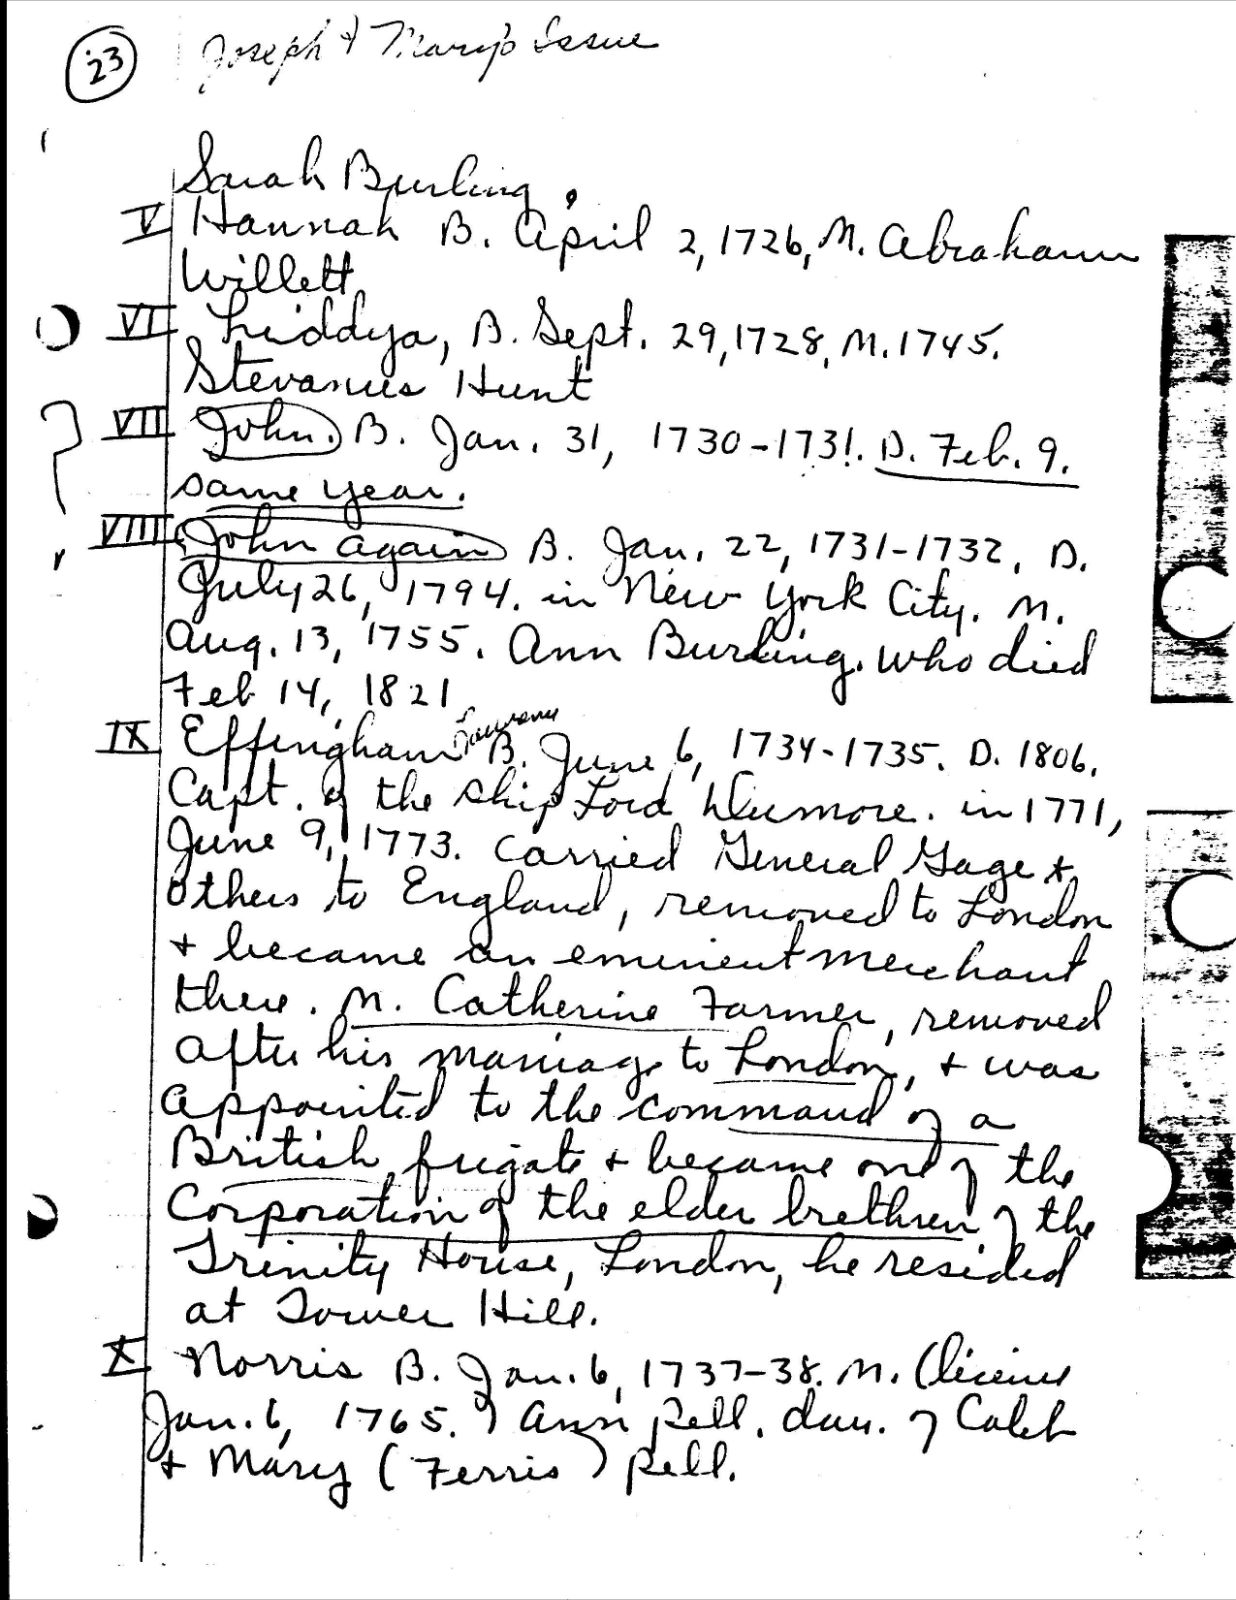 23 Joseph & Mary's Issue
Sarah Burling.
V Hannah B. April 2, 1726, M. Abraham
Willett
VI Liddya, B. Sept. 29, 1728, M. 1745.
Stevanus Hunt
? VII John. B. Jan. 31, 1730-1731. D. Feb. 9.
same year.
VIIII John again B. Jan. 22, 1731-1732, D.
July 26, 1794. in New York City. M.
Aug. 13, 1755. Ann Burling. who died
Feb 14, 1821
IX Effingham B. June 6, 1734-1735. D. 1806.
Capt. of the ship Lord Dunmore. in 1771,
June 9, 1773. carried General Gage &
others to England, removed to London
& became an eminent merchant
there. M. Catherine Farmer, removed
after his marriage to London, & was
appointed to the command of a
British frigate & became one of the
Corporation of the elder brethren of the
Trinity House, London, he resided
at Tower Hill.
X Norris B. Jan. 6, 1737-38. M. (license
Jan. 6, 1765.) Ann Pell. dau. of Caleb
& Mary (Ferris) Pell.